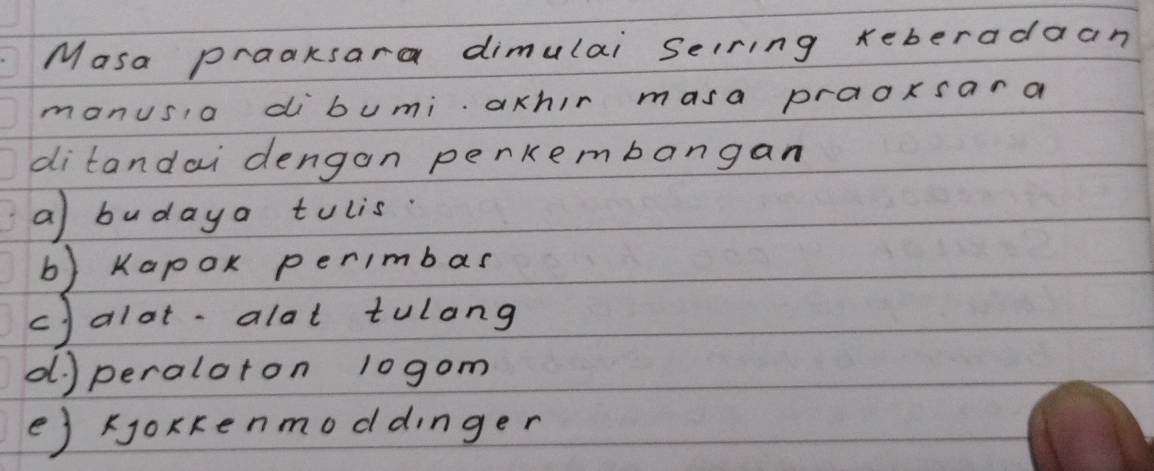 Masa praaksara dimulai seiring keberadaan
manusia di bumi. akhir masa praaksara
ditandai dengan perkembangan
a) budaya tulis.
b) kapak perimbas
c.) alat - alat tulang
d.) peralatan logam
e) kjokkenmoddinger